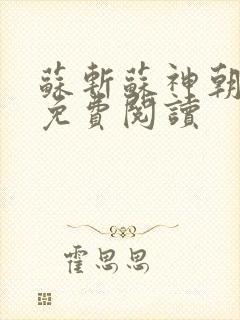 蘇斬蘇神朝
免費閱讀
霍思思